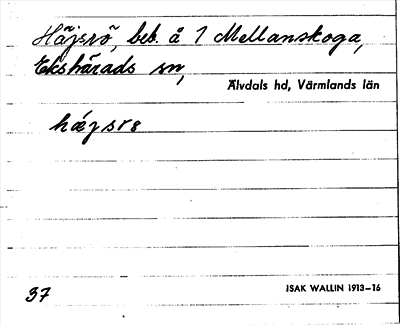 Häjsrö, beb. å 7 Mellanskoga,
Ekshärads sn,
Älvdals hd, Värmlands län
hæjsrø
37 ISAK WALLIN 1913–16